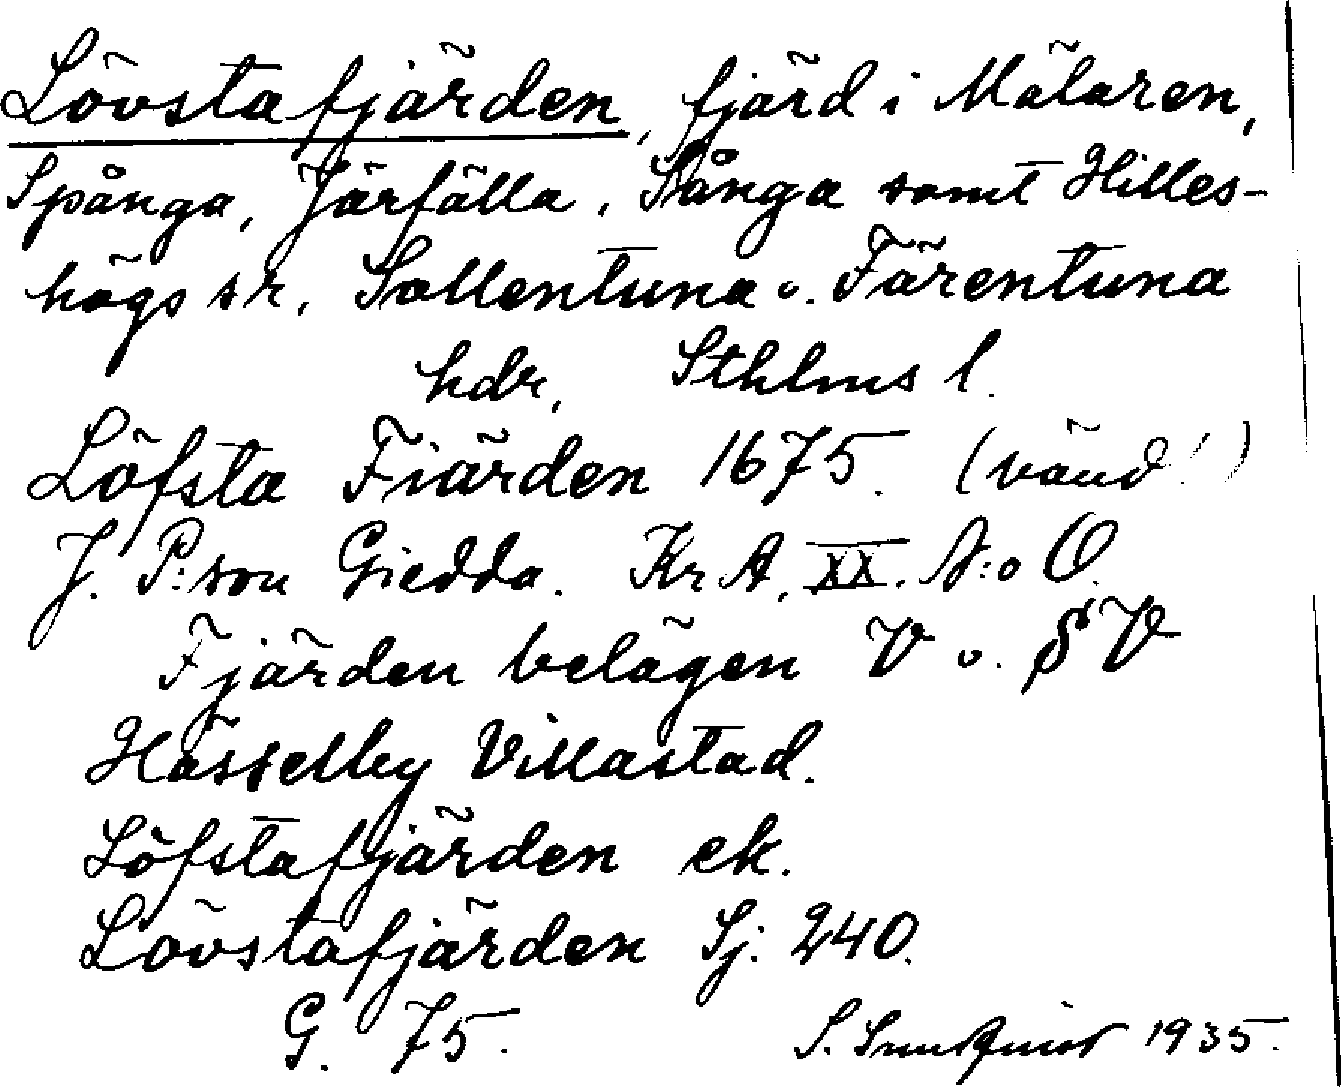 Lövstafjärden, fjärd i Mälaren,
Spånga, Järfälla, Sånga samt Hilles-
högs sr, Sollentuna o. Färentuna
hdr, Sthlms l.
Löfsta Fiärden 1675. (vänd!)
J. P:son Giedda. Kr A, XX. N:o O.
Fjärden belägen V o. SV
Hässelby Villastad.
Löfstafjärden ek.
Lövstafjärden Sj: 240.
G. 75.
S. 1935.